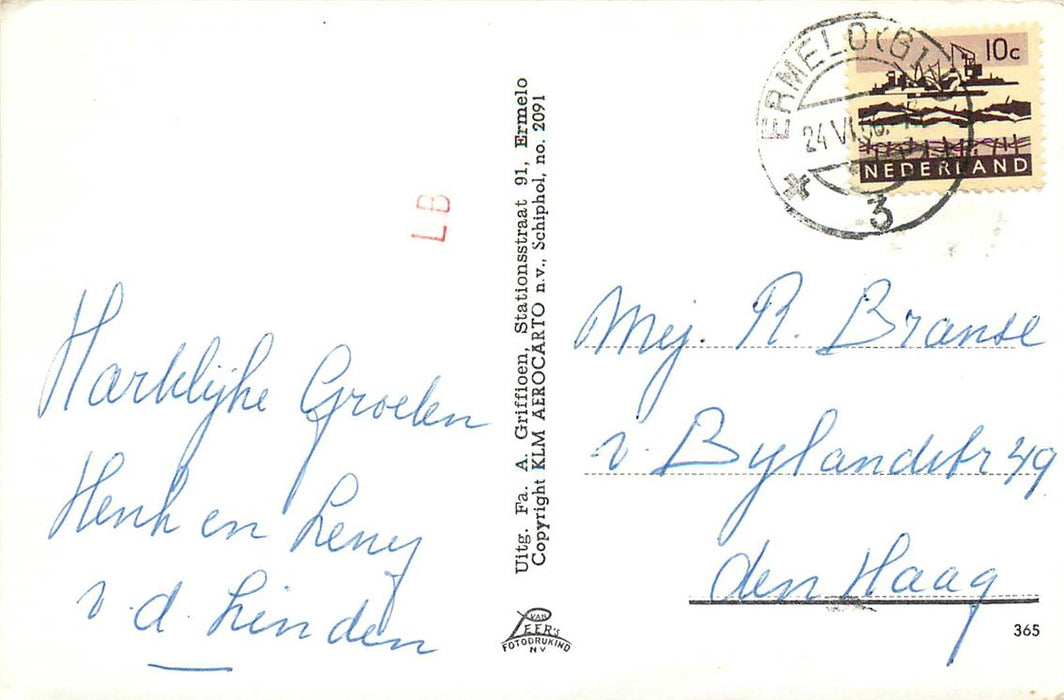 Harklijke Groeten
Henk en Leny
v.d. Linden
LB
Uitg. Fa. A. Griffioen, Stationsstraat 91, Ermelo
Copyright KLM AEROCARTO n.v., Schiphol, no. 2091
VAN
LEER's
FOTODRUKIND
NV
ERMELO(G
24 VI
3
10c
NEDERLAND
Mej. R. Branse
v. Bylandstr 49
den Haag
365